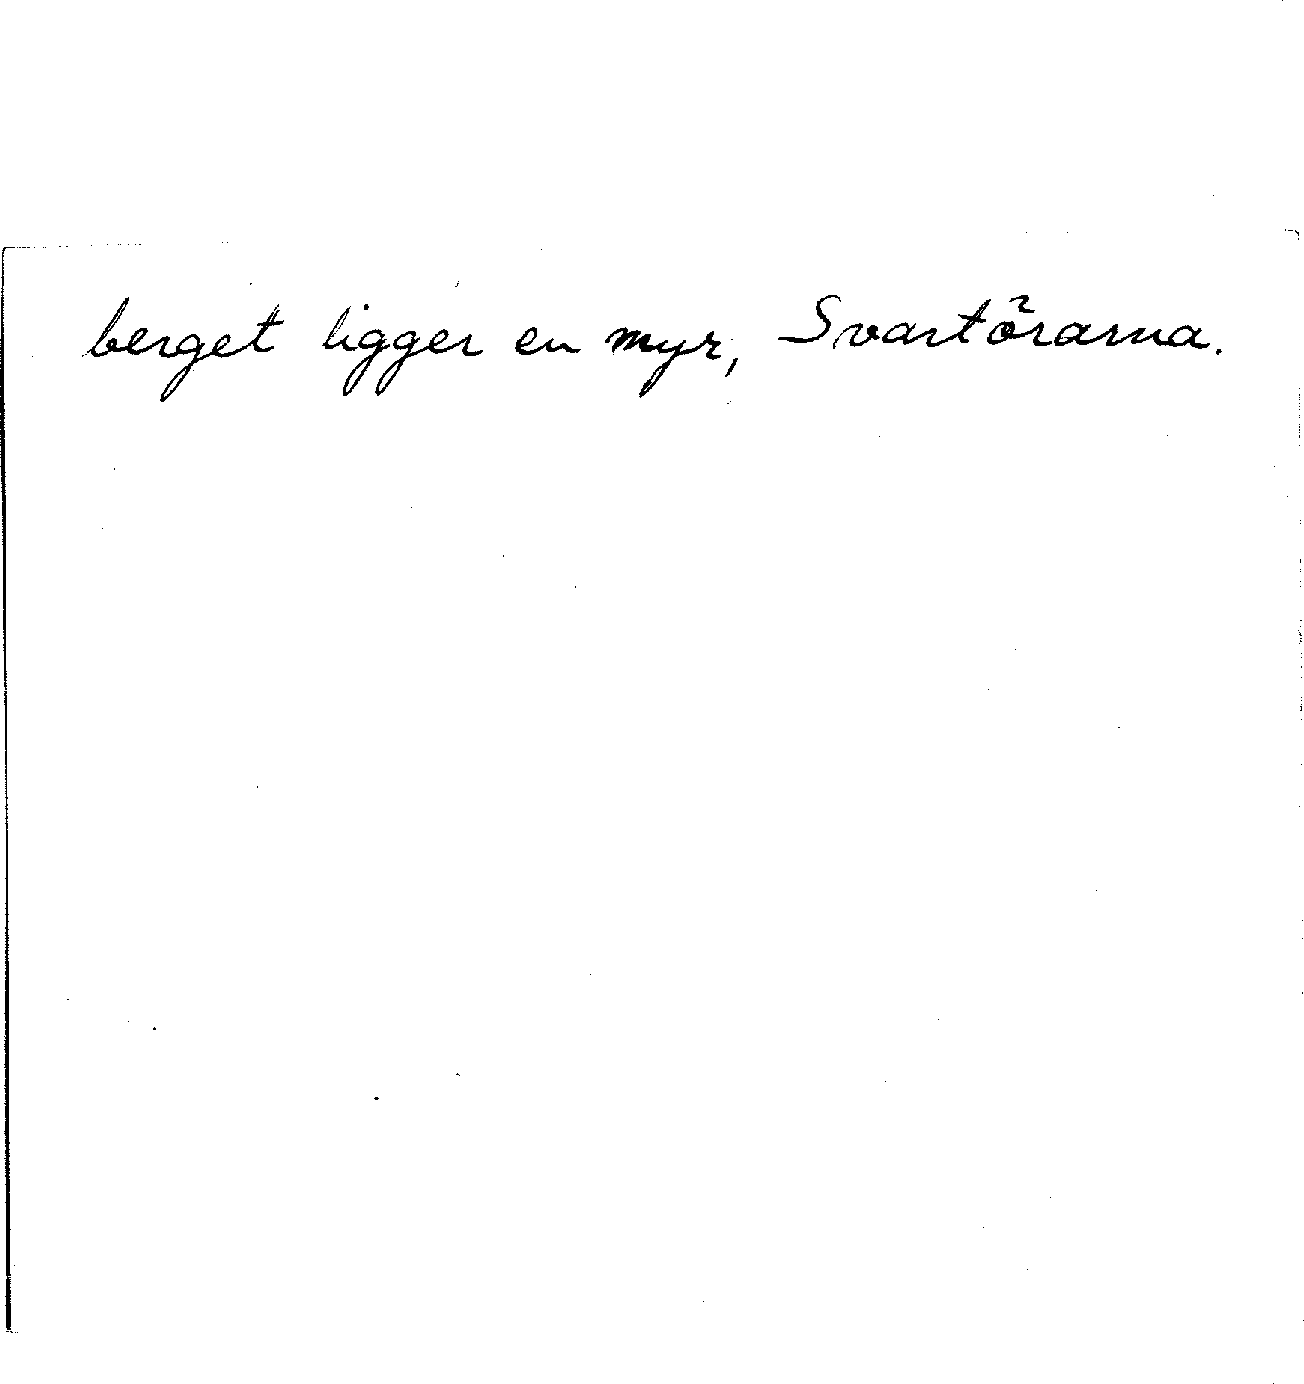 berget ligger en myr, Svartörarna.